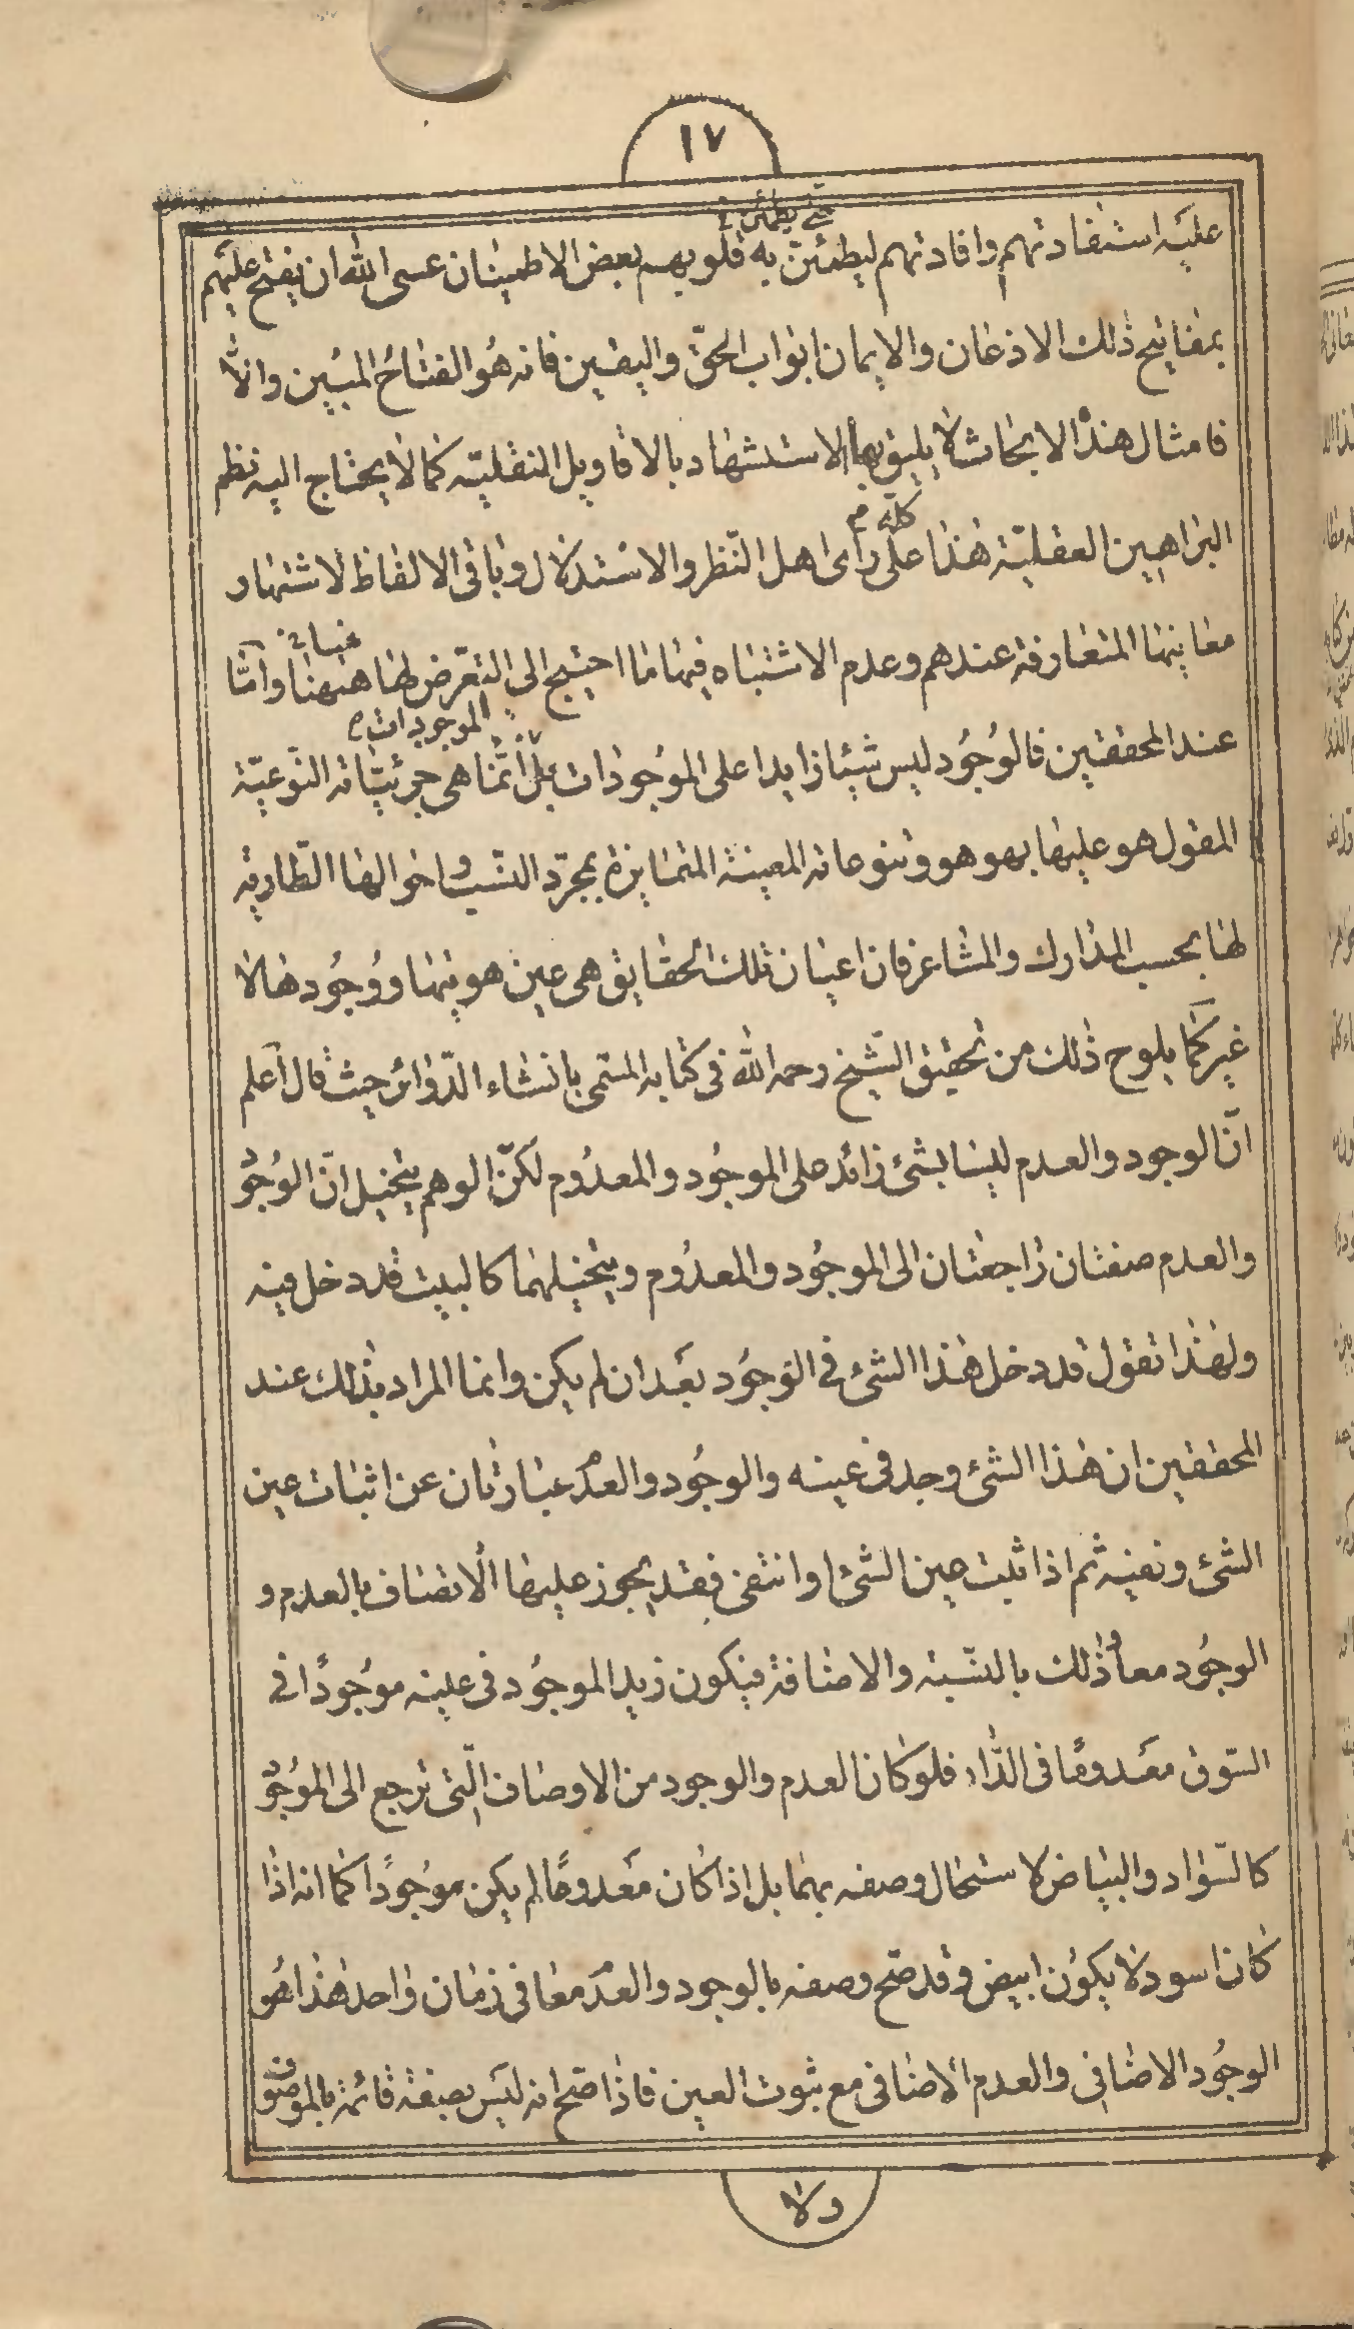 ١٧
حتى يطمئن
عليه استفادتهم وافادتهم ليطمئنّ به قلوبهم بعض الاطمينان عسى الله ان يفتح عليهم
بمفاتيح ذلك الاذعان والايمان ابواب الحقّ واليقين فانه هُو الفتاحُ المبين والّا
فامثال هذه الابحاث لا يليق بها الاستشهاد بالاقاويل النقليّه كما لا يحتاج اليه نظم
كله
البراهين العقليّة هذا على راى اهل النّظر والاستدلال وباقى الالفاظ لاشتهاد
معاينها المتعارفة عندهم وعدم الاشتباه فيها ما احتيج الى التعرّض لها ههنا وامّا
الموجودات
عند المحققين فالوجُود ليس شيئا زايدا على الموجودات بل انّما هى جزئيّاته النّوعيّة
المقول هو عليها بهو هو وتنوعاته المعينة المتمايزة بمجرّد النّسب واحوالها الطّارية
لها بحسب المدارك والمشاعر فان اعيان تلك الحقايق هى عين هويتها ووُجُودها لا
غير كما يلوح ذلك من تحقيق الشّيخ رحمه الله فى كتابه المسمى بانشاء الدّوائر حيث قال اعلم
انّ الوجود والعدم ليسا بشئ زائد على الموجُود والمعدُوم لكنّ الوهم يتخيل انّ الوُجُود
والعدم صفتان راجعتان الى الموجُود والمعدُوم ويتخيلهما كالبيت قد دخل فيه
ولهذا تقول قد دخل هذا الشئ فى الوجُود بعد ان لم يكن وانما المراد بذلك عند
المحققين ان هذا الشئ وجد فى عينه والوجُود والعدم عبارتان عن اثبات عين
الشئ ونفيه ثم اذا ثبت عين الشئ او انتفى فقد يجوز عليها الاتصاف بالعدم و
الوجُود معا وذلك بالنّسبة والاضافة فيكون زيد الموجُود فى عينه موجُودًا فى
السّوق معدومًا فى الدّار فلو كان العدم والوجود من الاوصاف الّتى ترجع الى الموجُود
كالسّواد والبياض لاستحال وصفه بهما بل اذا كان معدومًا لم يكن موجُودًا كما انه اذا
كان اسود لا يكون ابيض وقد صّح وصفه بالوجود والعدم معا فى زمان واحد هذا هُو
الوجُود الاضافى والعدم الاضافى مع ثبوت العين فاذا صّح انه ليَس بصفة قائمة بالموصوف
ولا